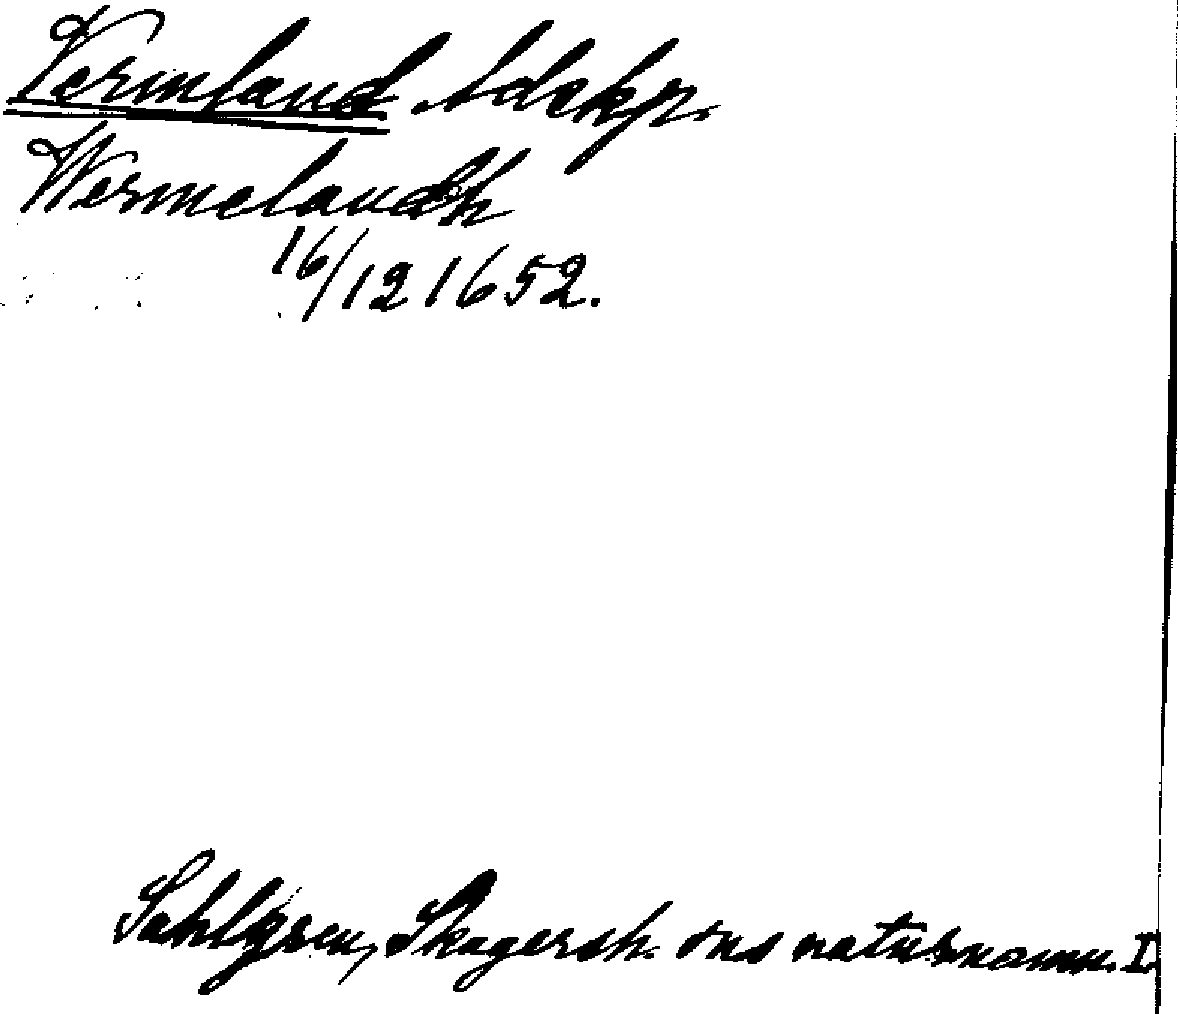 Vermland ldskp.
Wermelandh
16/12 1652.
Sahlgren, Skagersh. sns naturnamn. I